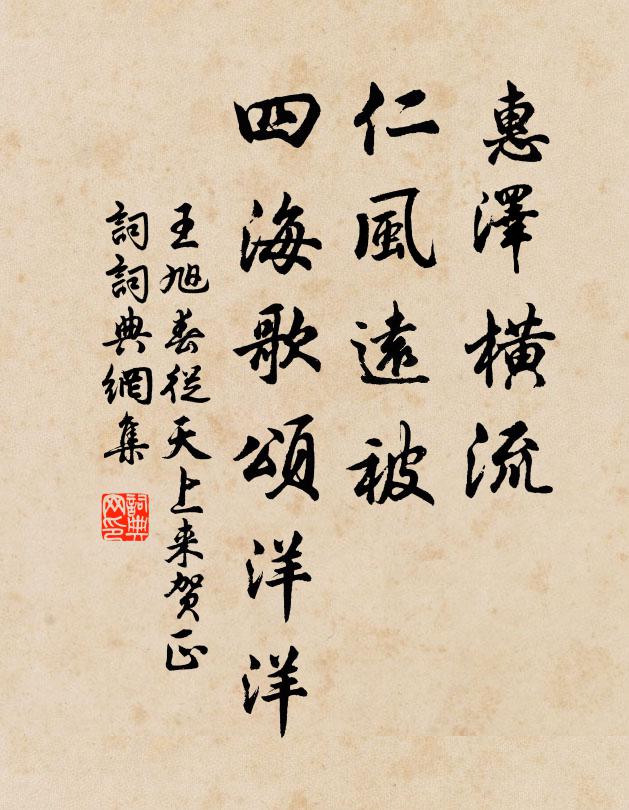 惠澤橫流
仁風遠被
四海歌頌洋洋
王旭春從天上来贺正
詞詞典網集
詞典
网印